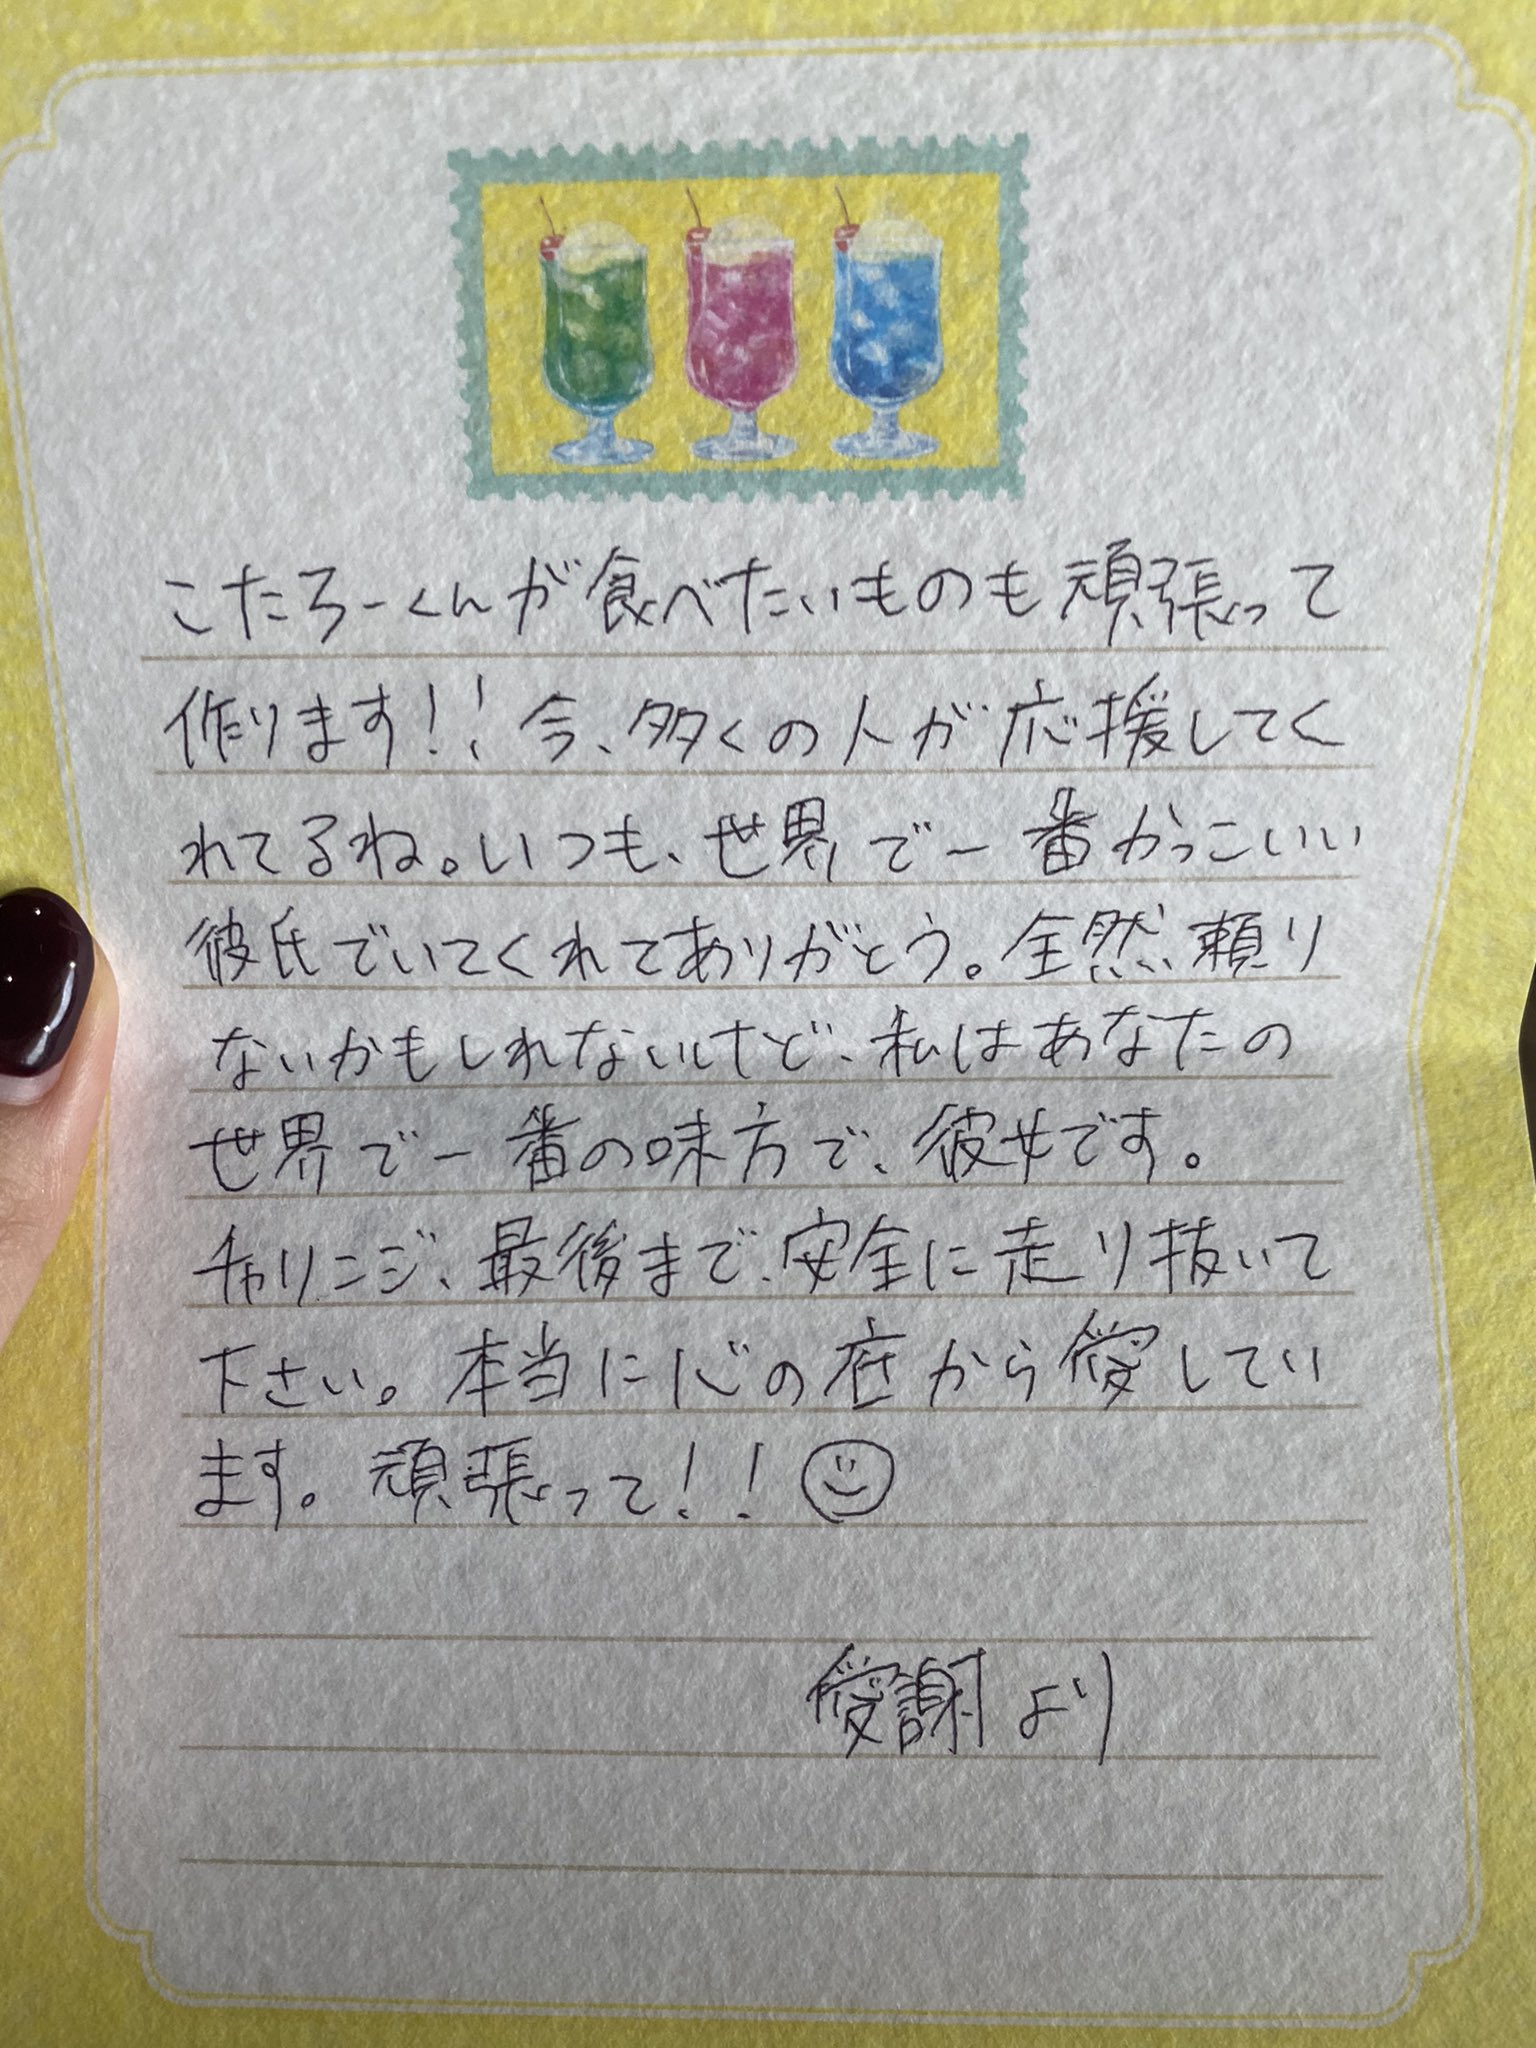 こたろーくんが食べたいものも頑張って
作ります!!今、多くの人が応援してく
れてるね。いつも、世界で一番かっこいい
彼氏でいてくれてありがとう。全然頼り
ないかもしれないけど、私はあなたの
世界で一番の味方で、彼女です。
チャリンジ、最後まで、安全に走り抜いて
下さい。本当に心の底から愛してい
ます。頑張って!!
愛謝より